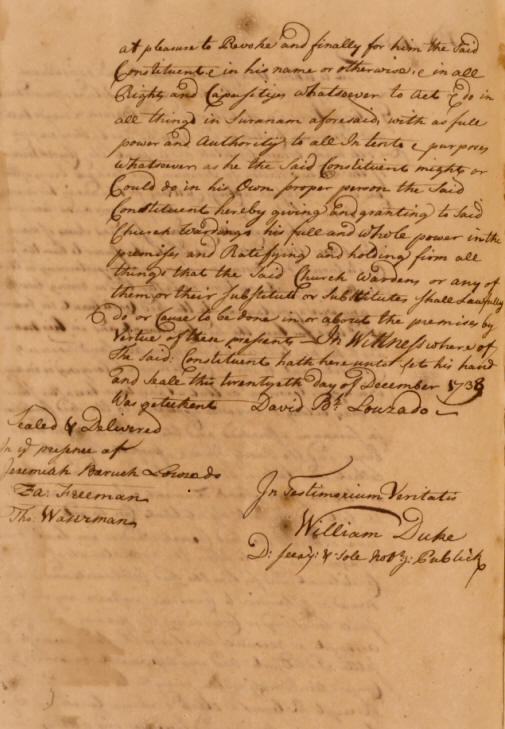 at pleasure to Revoke and finally for him the Said
Constituent & in his name or otherwise & in all
Right and Capasitijs whatsoever to Act & do in
all things in Suranam aforesaid, with as full
power and Authority to all Intents & purposes
whatsoever as he the Said Constituent might or
Could do in his Own proper person the Said
Constituent hereby giving and granting to Said
Church Wardings his full and whole power in the
premises and Ratifying and holding firm all
things that the Said Church Wardens or any of
them or their Substitute or Substitutes Shall Lawfully
do or Cause to be done in or about the premises by
Virtue of these presents – In Wittness where of
The Said: Constituent hath here unto Set his hand
and Seale this twentyeth Day of December 1738
Was geteekent David Bh Louzado
Sealed & Delivered
In ye presence of
Jeremiah Baruch Louzado
Za: Freeman
Tho: Waserman
In Testimonium Veritatis
William Duke
D: Secry: & Sole Noty: Publick